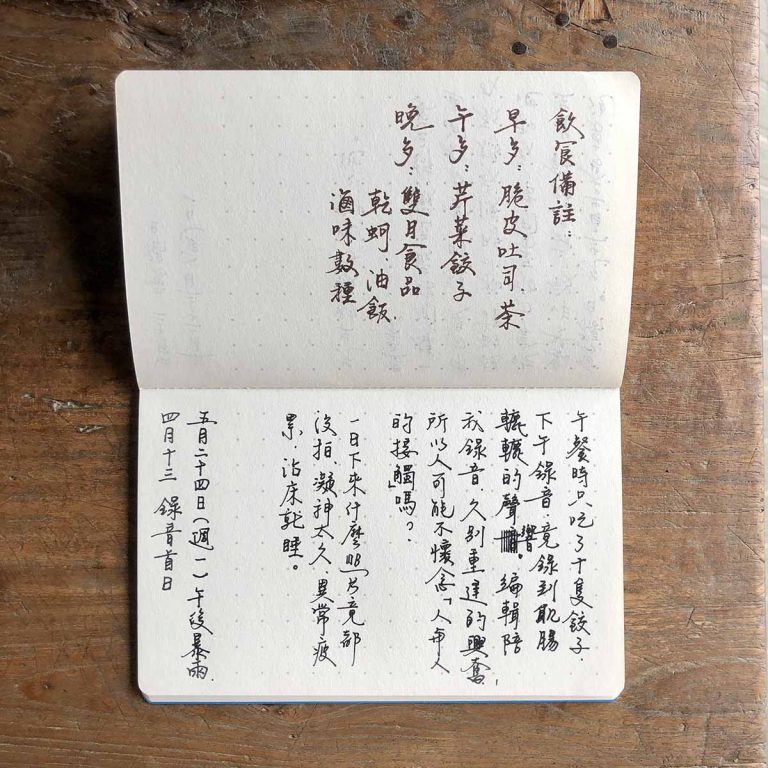 飲食備註：
早歺：脆皮吐司、茶
午歺：芹菜餃子
晚歺：雙月食品
乾蚵、油飯、
滷味數種
午餐時只吃了十隻餃子，
下午錄音，竟錄到飢腸
轆轆的聲響。編輯陪
我錄音，久別重逢的興奮，
所以人可能不懷念「人與人
的接觸」嗎？
一日下來什麼照片竟都
沒拍，神太久，異常疲
累，沾床就睡。
五月二十四日(週一)午後暴雨.
四月十三 錄音首日